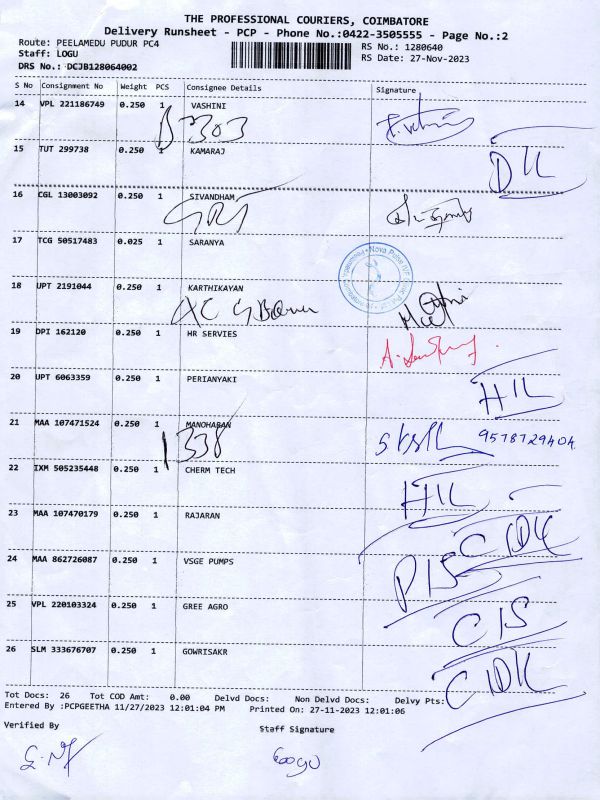 THE PROFESSIONAL COURIERS, COIMBATORE
Delivery Runsheet - PCP - Phone No.:0422-3505555 - Page No.:2
Route: PEELAMEDU PUDUR PC4
RS No.: 1280640
Staff: LOGU
RS Date: 27-Nov-2023
DRS No.: DCJB128064002
S No Consignment No Weight PCS Consignee Details Signature
14 VPL 221186749 0.250 1 VASHINI
303
15 TUT 299738 0.250 1 KAMARAJ
DIL
16 CGL 13003092 0.250 1 SIVANDHAM
17 TCG 50517483 0.025 1 SARANYA
18 UPT 2191044 0.250 1 KARTHIKAYAN
19 DPI 162120 0.250 1 HR SERVIES
20 UPT 6063359 0.250 1 PERIANYAKI
HIL
21 MAA 107471524 0.250 1 MANOHARAN
338
22 IXM 505235448 0.250 1 CHERM TECH
HIL
23 MAA 107470179 0.250 1 RAJARAN
24 MAA 862726087 0.250 1 VSGE PUMPS
25 VPL 220103324 0.250 1 GREE AGRO
CIS
26 SLM 333676707 0.250 1 GOWRISAKR
Tot Docs: 26 Tot COD Amt: 0.00 Delvd Docs: Non Delvd Docs: Delvy Pts:
Entered By :PCPGEETHA 11/27/2023 12:01:04 PM Printed On: 27-11-2023 12:01:06
Verified By
Staff Signature